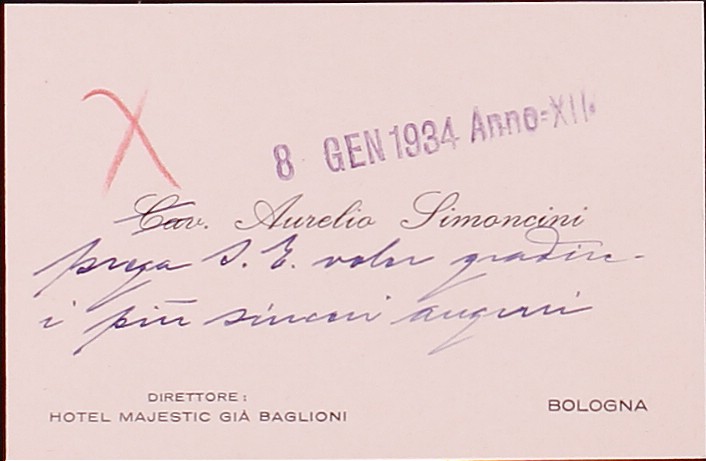 8 GEN 1934 Anno=XII.
Cav. Aurelio Simoncini
prega S. E. voler gradire
i più sinceri auguri
DIRETTORE:
HOTEL MAJESTIC GIÀ BAGLIONI
BOLOGNA